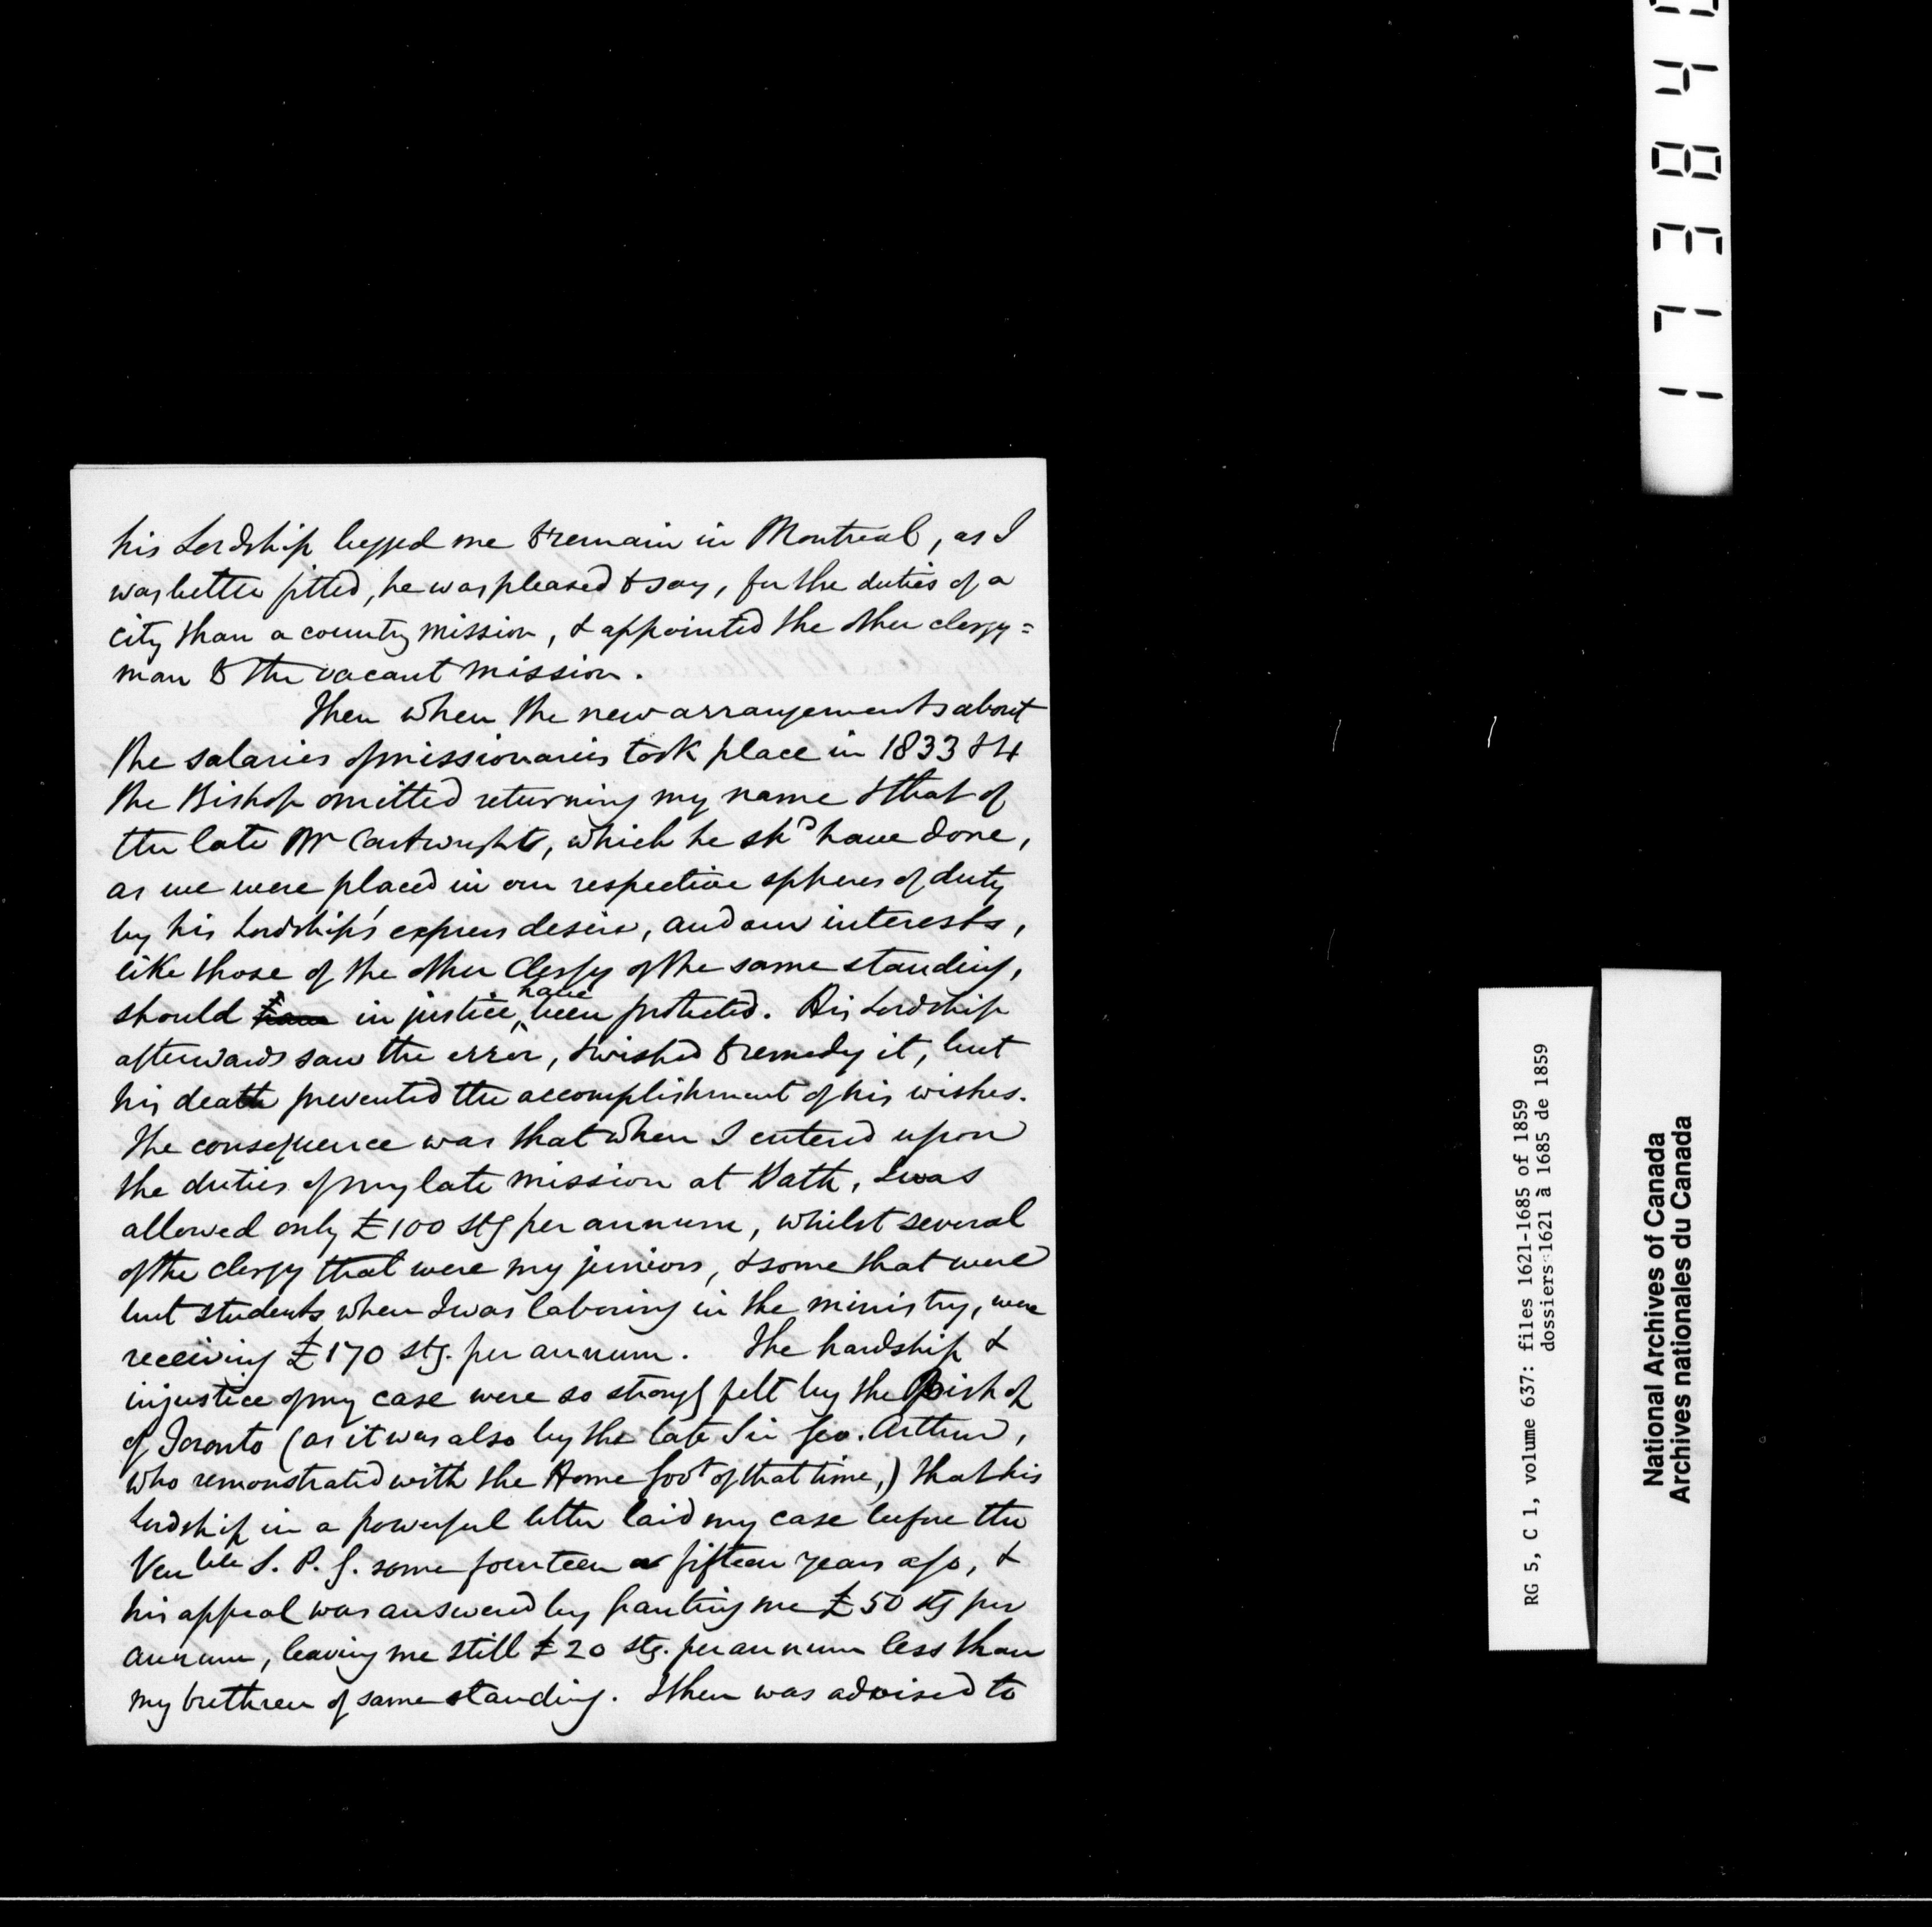 his Lordship begged me to remain in Montreal, as I
was better fitted, he was pleased to say, for the duties of a
city than a country mission, & appointed the other clergy=
man to the vacant mission.
Then when the new arrangements about
the salaries of missionaries took place in 1833 & 4
the Bishop omitted returning my name & that of
the late Mr Cartwright, which he shd have done,
as we were placed in our respective spheres of duty
by his Lordship's express desire, and our interests,
like those of the other Clergy of the same standing,
should have in justice have been protected. His Lordship
afterwards saw the error, & wished to remedy it, but
his death prevented the accomplishment of his wishes.
The consequence was that when I entered upon
the duties of my late mission at Bath, I was
allowed only £100 stg per annum, whilst several
of the clergy that were my juniors, & some that were
but students when I was laboring in the ministry, were
receiving £170 stg. per annum. The hardship &
injustice of my case were so strongly felt by the Bishop
of Toronto (as it was also by the late Sir Geo. Arthur,
who remonstrated with the Home Govt of that time,) that his
Lordship in a powerful letter laid my case before the
Venble S. P. G. some fourteen or fifteen years ago, &
his appeal was answered by granting me £50 stg per
annum, leaving me still £20 stg. per annum less than
my brethren of same standing. I then was advised to
17384
RG 5, C 1, volume 637: files 1621-1685 of 1859
dossiers 1621 à 1685 de 1859
National Archives of Canada
Archives nationales du Canada